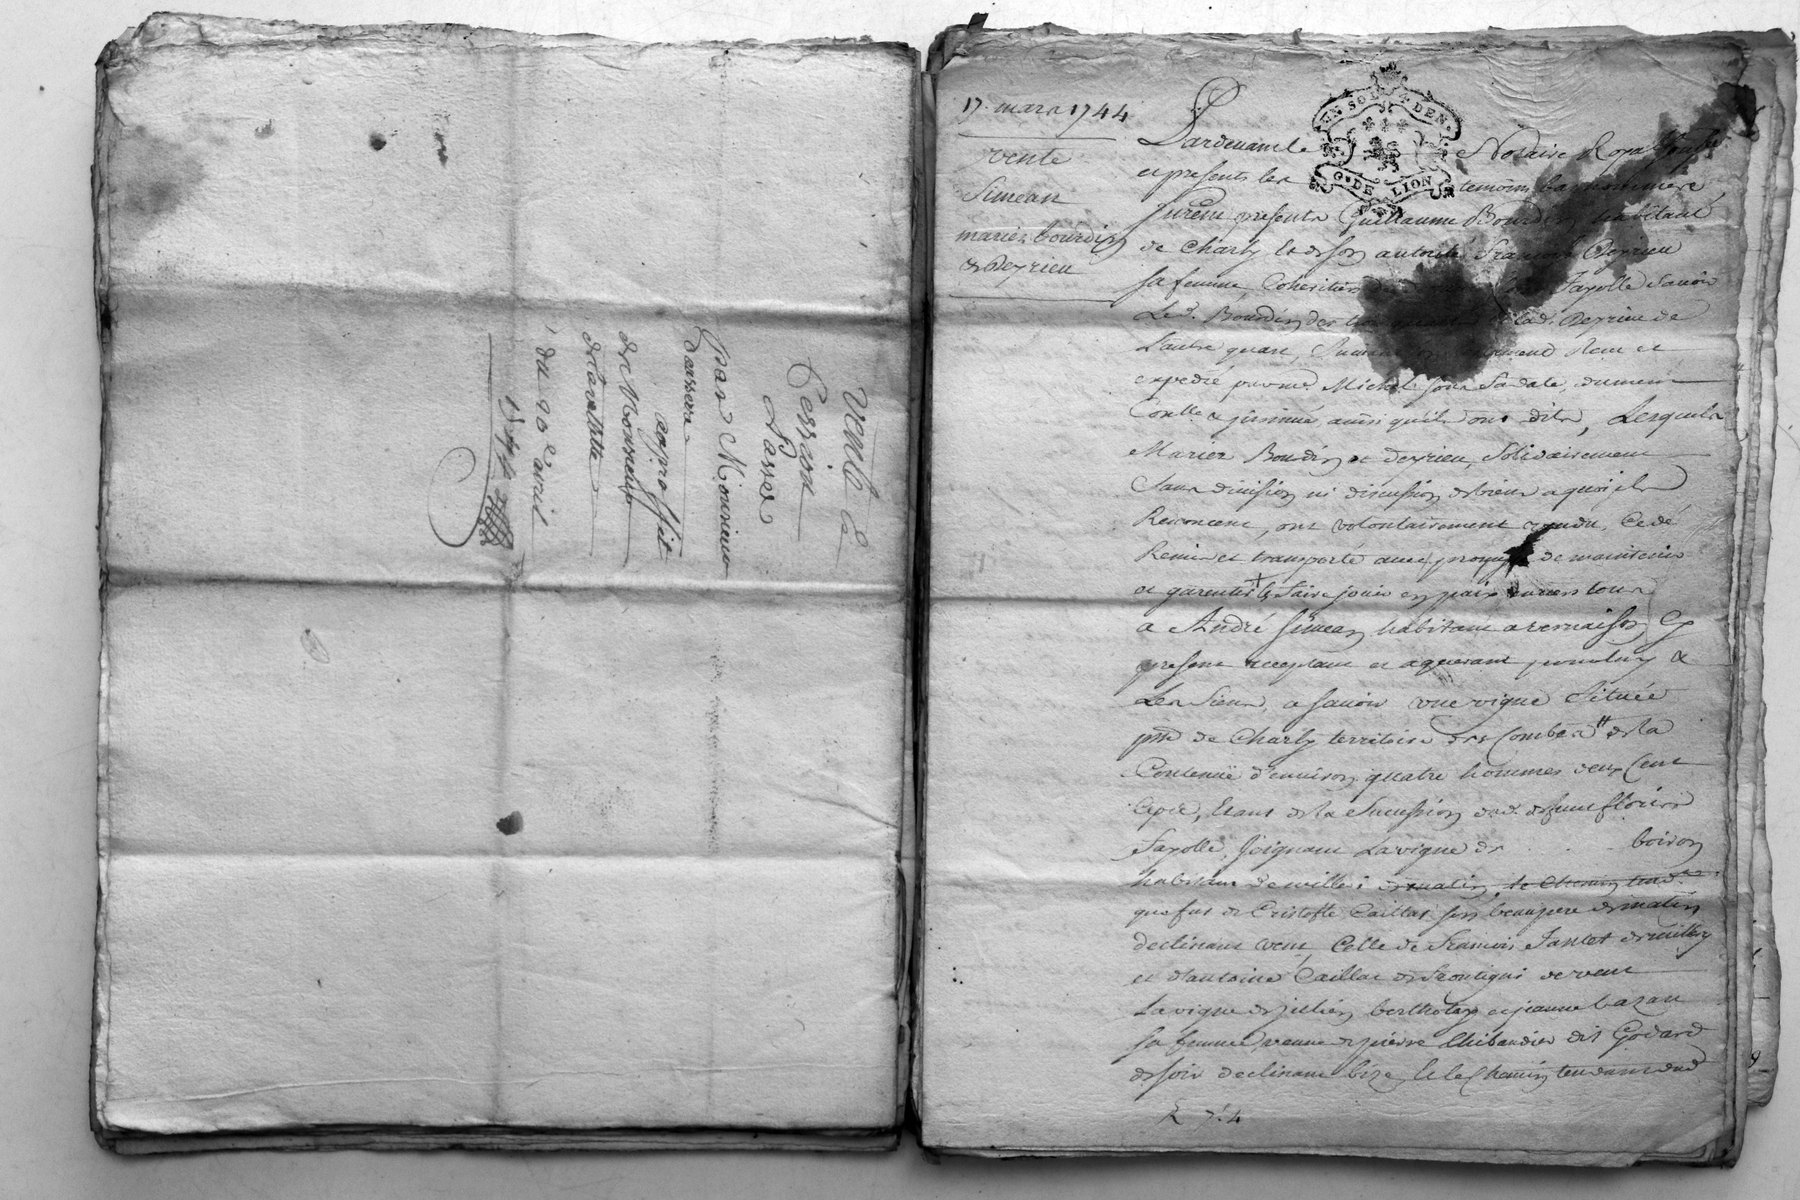 vente &
Cession
Passée
par Monsieur
dassere
a profit
de Monsieur
delavalette
du 20e avril
17. mars 1744
vente
Simean
mariez bourdin
& Deyrieu
UN SOL 4 DEN.
G. DE LION
Pardevant le Notaire Royal
et presents les temoins bas nommés
furent presents Guillaume Bourdin habitant
de Charly & de son autorité Françoise Deyrieu
sa femme Coheritiers Fayolle Savoir
Led. Bourdin des trois quarts lad. Deyrieu de
L'autre quart, Recu et
expedié par me. Michel
Conlle & insinué ainsi qu'ils ont dits, Lesquels
Mariez Bourdin et deyrieu, Solidairement
Sans division ni discussion de biens a quoi ils
Renoncent, ont volontairement vendu, Cedé
Remis et transporté avec promesse de maintenir
et garentir & faire jouir en paix envers tous
a André Simean habitant a vernaison Cy
present acceptant et aquerant pour luy &
Les Siens, a savoir une vigne Située
psse de Charly territoire des Combes de la
Contenüe d'environ quatre hommes deux Cent
Cepts, Etant de la Succession dud. defunt
Fayolle, Joignant La vigne de boiron
habitant de millei de matin, le Chemin tend.
que fut de Cristofle Caillat son beaupere de matin
declinant vent, Celle de François Jantet de millery
et d'antoine Caillat de Frontigni de vent
La vigne de julien bertholey et jeanne bazan
sa femme, veuve de pierre thibaudier dit Godard
de soir declinant bize, Et le Chemin tendant dud